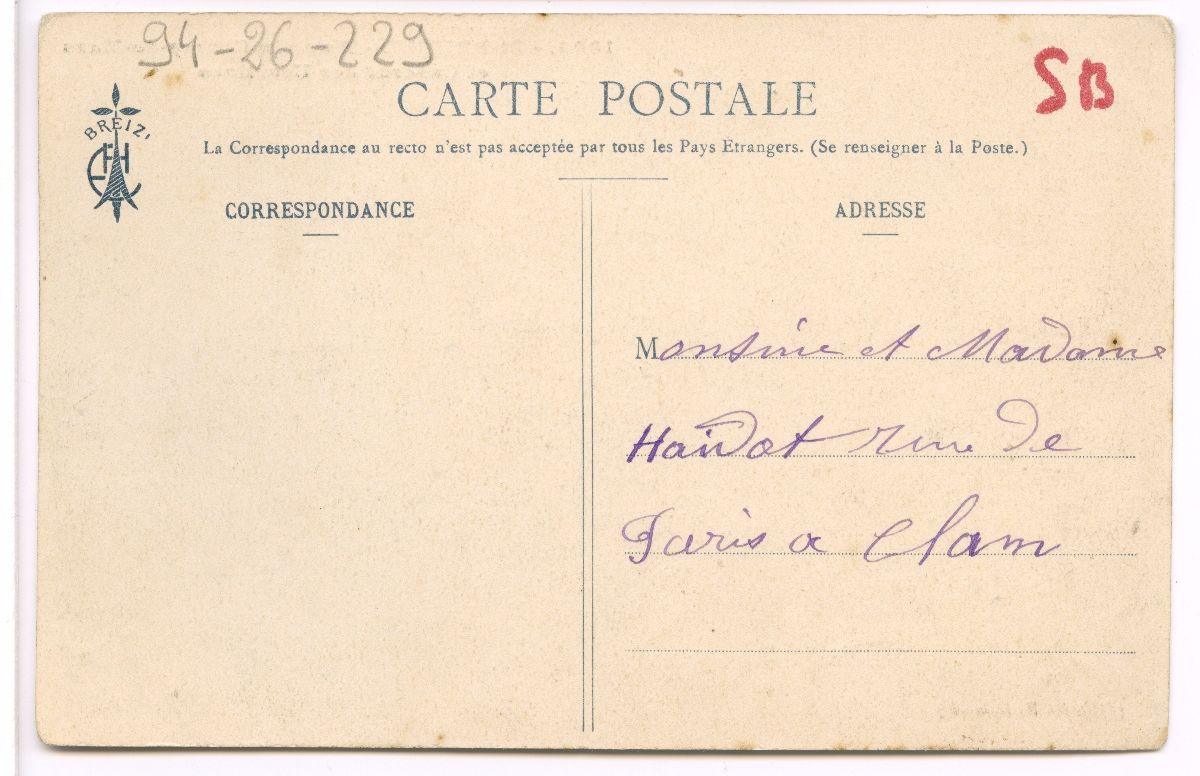 94-26-229
SB
BREIZ'
CARTE POSTALE
La Correspondance au recto n'est pas acceptée par tous les Pays Étrangers. (Se renseigner à la Poste.)
CORRESPONDANCE
ADRESSE
Monsine et Madame
Haidot rue de
Paris a Clam